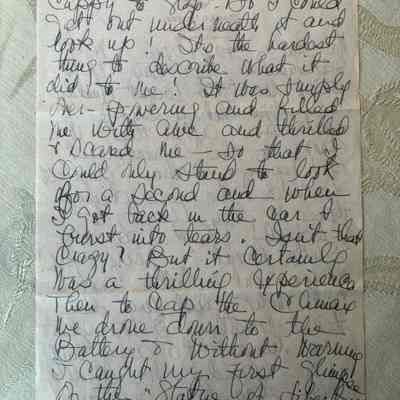 to stop - So I could
get out underneath it and
look up! It's the hardest
thing to describe what it
did to me! It was simply
over-powering and filled
me with awe and thrilled
& scared me - So that I
could only stand to look
for a second and when
I got back in the car I
burst into tears. Isn't that
crazy? But it certainly
was a thrilling experience
Then to cap the climax
we drove down to the
Battery & without warning
I caught my first glimpse
of the "Statue of